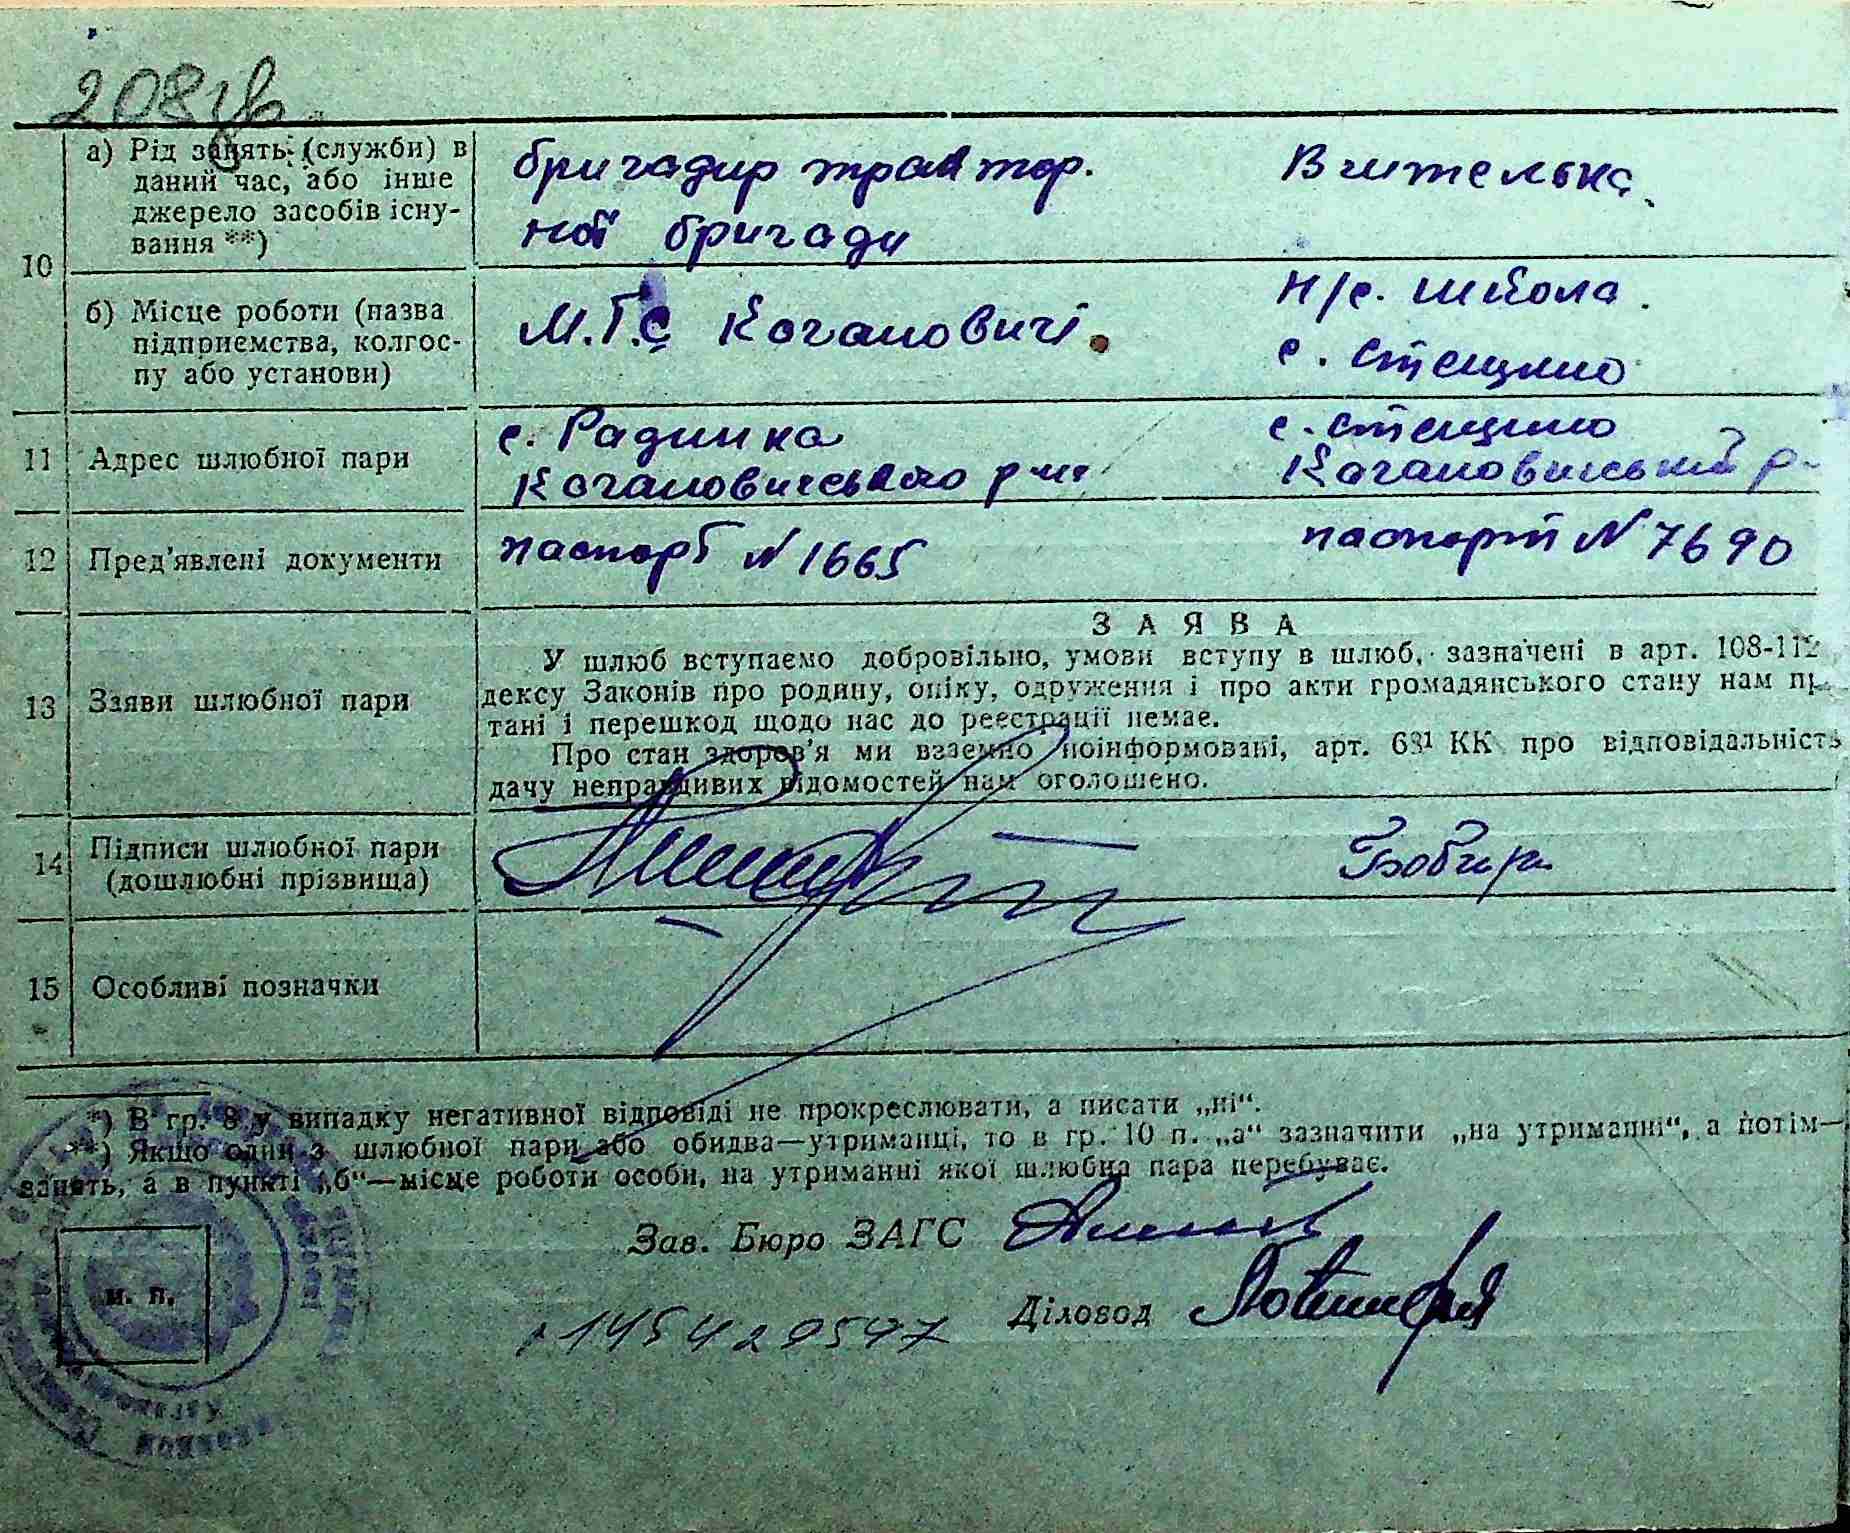 208 зв.
а) Рід занять (служби) в
даний час, або інше
джерело засобів існу-
вання **)
бригадир трактор.
ної бригади
Вчителька
10
б) Місце роботи (назва
підприємства, колгос-
пу або установи)
М.Т.С Кагановичі.
н/с. школа.
с. Стещино
11
Адрес шлюбної пари
с. Радинка
Кагановичського р-ну
с. Стещино
Кагановичський р-
12
Пред'явлені документи
паспорт N 1665
паспорт N 7690
13
Заяви шлюбної пари
ЗАЯВА
У шлюб вступаємо добровільно, умови вступу в шлюб, зазначені в арт. 108-112
дексу Законів про родину, опіку, одруження і про акти громадянського стану нам
тані і перешкод щодо нас до реєстрації немає.
Про стан здоров'я ми взаємно поінформовані, арт. 68¹ КК про відповідальність
дачу неправдивих відомостей нам оголошено.
14
Підписи шлюбної пари
(дошлюбні прізвища)
Бобир
15
Особливі позначки
*) В гр. 8 у випадку негативної відповіді не прокреслювати, а писати „ні“.
**) Якщо один з шлюбної пари або обидва—утриманці, то в гр. 10 п. „а“ зазначити „на утриманні“, а потім—
занять, а в пункті „б“—місце роботи особи, на утриманні якої шлюбна пара перебуває.
Зав. Бюро ЗАГС
м. п.
Діловод
1454429547